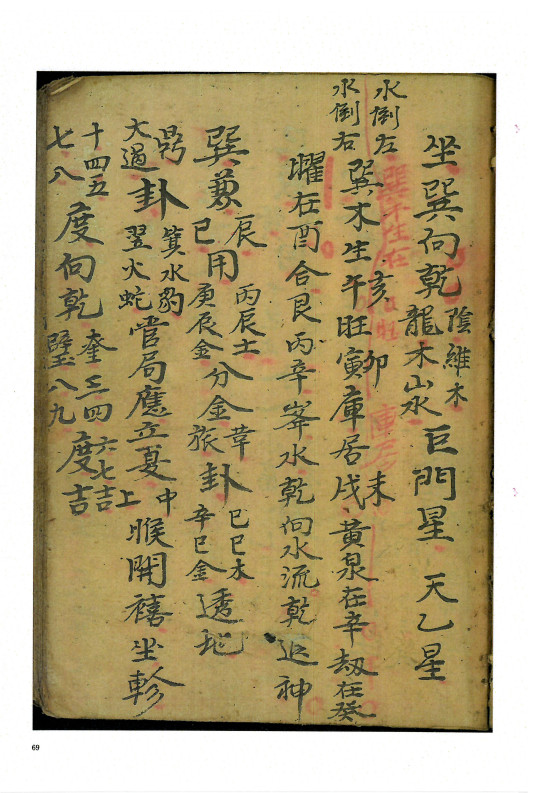 坐巽向乾 陰維木 龍木山水 巨門星 天乙星
水倒左 水倒右 巽木生 亥 午 旺 卯 寅 庫居 未 戌 黃泉在辛 劫在癸
曜在酉 合艮丙辛峯水 乾向水流乾 迎神
巽兼 辰 巳 用 丙辰土 庚辰金 分金 革 旅 卦 己巳木 辛巳金 透地
鼎 大過 卦 箕水豹 翌火蛇 管局 應立夏 中 上 候 開禧坐軫
十四五 七八 度向乾 奎三四 璧八九 度 六七吉 吉
69